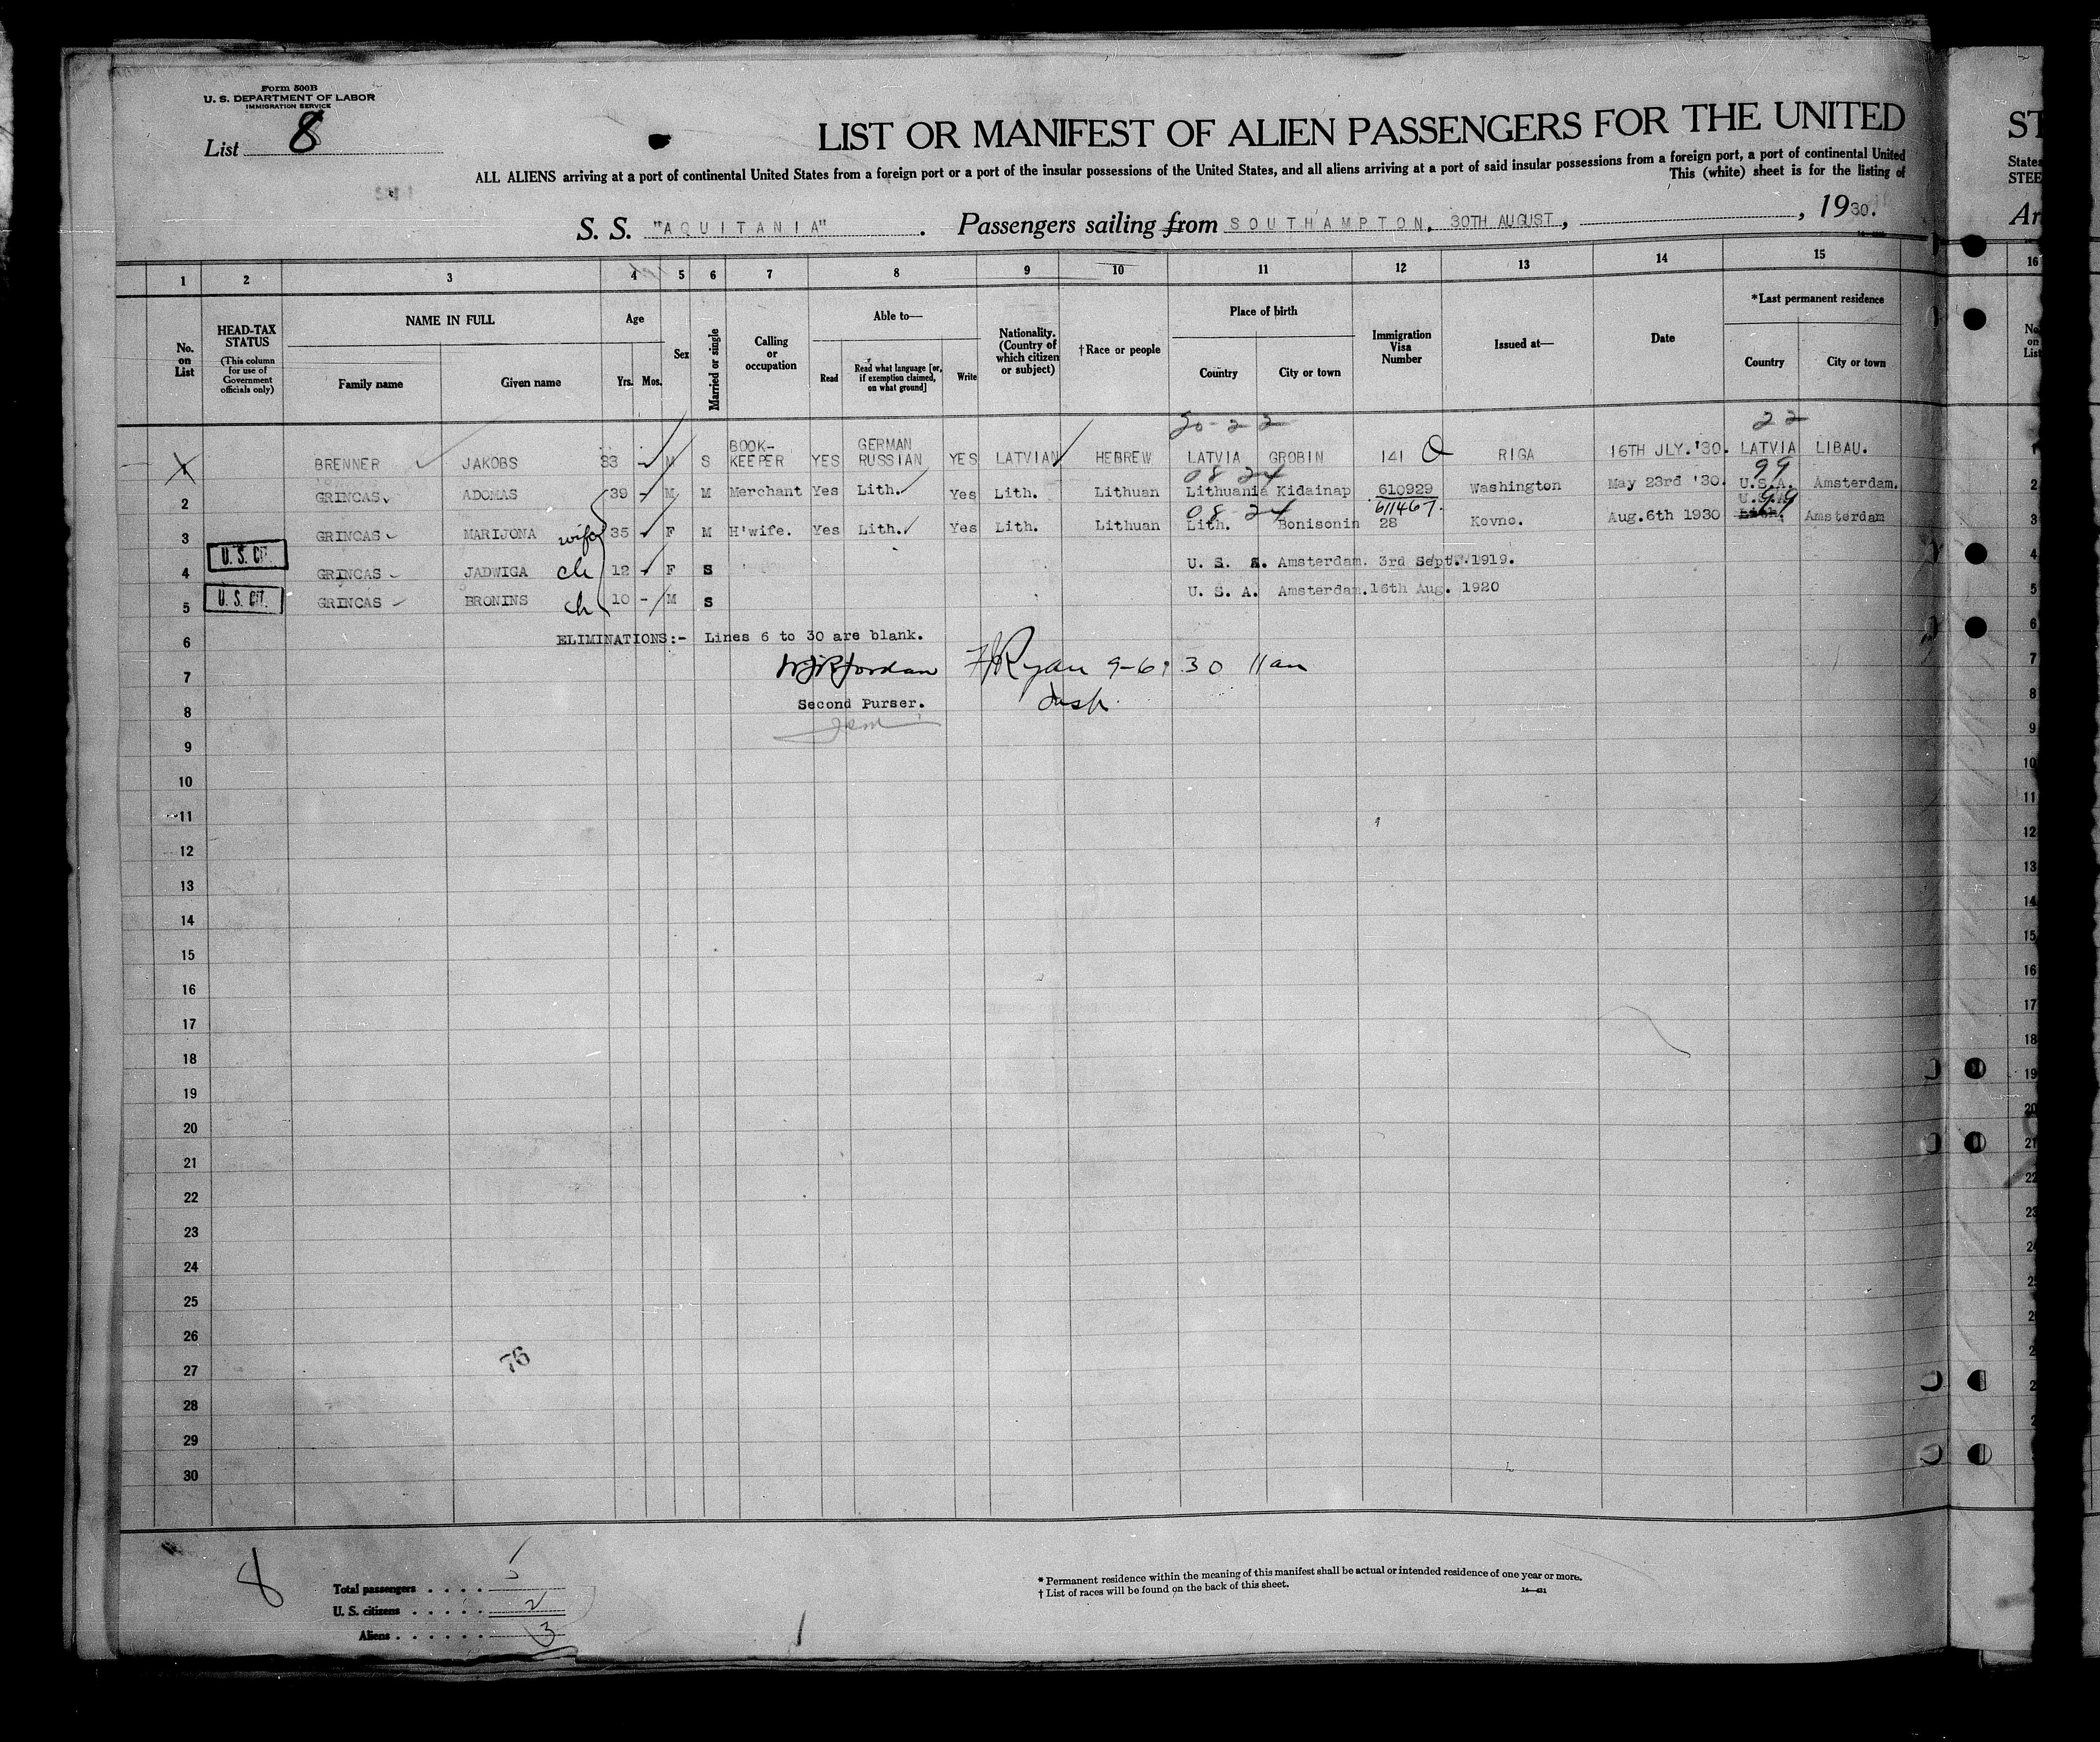 Form 500B
U. S. DEPARTMENT OF LABOR
IMMIGRATION SERVICE
List 8
LIST OR MANIFEST OF ALIEN PASSENGERS FOR THE UNITED
ALL ALIENS arriving at a port of continental United States from a foreign port or a port of the insular possessions of the United States, and all aliens arriving at a port of said insular possessions from a foreign port, a port of continental United
This (white) sheet is for the listing of
S. S. "AQUITANIA". Passengers sailing from SOUTHAMPTON, 30TH AUGUST, , 1930.
1 2 3 4 5 6 7 8 9 10 11 12 13 14 15 16
No. on List
HEAD-TAX STATUS
(This column for use of Government officials only)
NAME IN FULL
Family name Given name
Age
Yrs. Mos.
Sex
Married or single
Calling or occupation
Able to—
Read Read what language [or, if exemption claimed, on what ground] Write
Nationality. (Country of which citizen or subject)
†Race or people
Place of birth
Country City or town
Immigration Visa Number
Issued at—
Date
*Last permanent residence
Country City or town
20-22 22
BRENNER JAKOBS 33 - M S BOOK-KEEPER YES GERMAN RUSSIAN YES LATVIAN HEBREW LATVIA GROBIN 141 RIGA 16TH JLY.'30. LATVIA LIBAU.
08 24 99
2 GRINCAS ADOMAS 39 - M M Merchant Yes Lith. Yes Lith. Lithuan Lithuania Kidainap 610929 Washington May 23rd '30. U.S.A. Amsterdam.
611467.
08 24 U.S.A. 99
3 GRINCAS MARIJONA wife 35 - F M H'wife. Yes Lith. Yes Lith. Lithuan Lith. Bonisonin 28 Kovno. Aug.6th 1930 Lith. Amsterdam
U. S. CIT.
4 GRINCAS JADWIGA ch 12 - F S U. S. A. Amsterdam. 3rd Sept. 1919.
U. S. CIT.
5 GRINCAS BRONINS ch 10 - M S U. S. A. Amsterdam. 16th Aug. 1920
6 ELIMINATIONS:- Lines 6 to 30 are blank.
7 Jordan Ryan 9-6-30 11am
8 Second Purser. Insp.
9
10
11
12
13
14
15
16
17
18
19
20
21
22
23
24
25
26
27
76
28
29
30
8
Total passengers . . . .
U. S. citizens . . . . . 2
Aliens . . . . . . 3
* Permanent residence within the meaning of this manifest shall be actual or intended residence of one year or more.
† List of races will be found on the back of this sheet.
ST
States
STEE
Ar